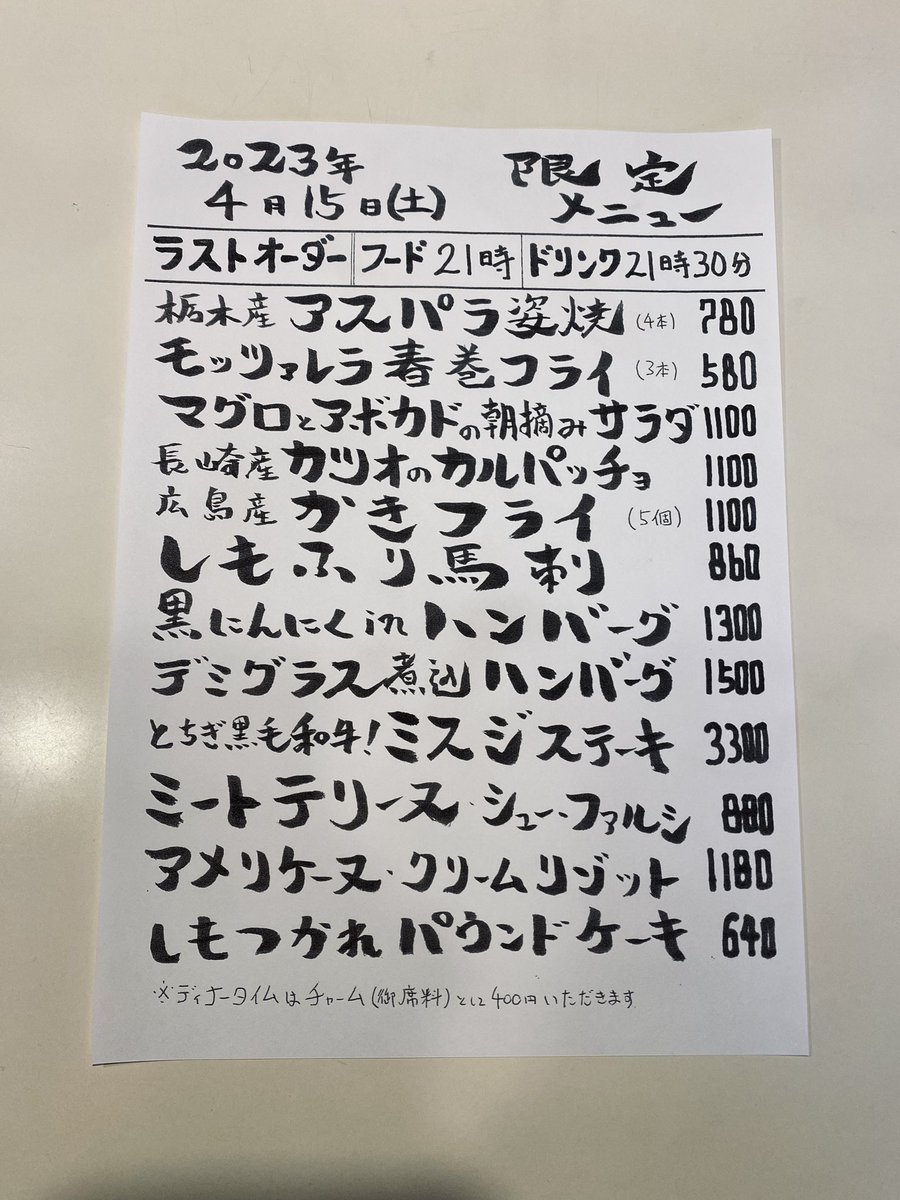 2023年 限定
4月15日(土) メニュー
ラストオーダー フード21時 ドリンク21時30分
栃木産 アスパラ姿焼 (4本) 780
モッツァレラ春巻フライ (3本) 580
マグロとアボカドの朝摘みサラダ 1100
長崎産 カツオのカルパッチョ 1100
広島産 かきフライ (5個) 1100
しもふり馬刺 860
黒にんにくinハンバーグ 1300
デミグラス煮込ハンバーグ 1500
とちぎ黒毛和牛!ミスジステーキ 3300
ミートテリーヌ・シュー・ファルシ 880
アメリケーヌ・クリームリゾット 1180
しもつかれパウンドケーキ 640
※ディナータイムはチャーム(御席料)として400円いただきます